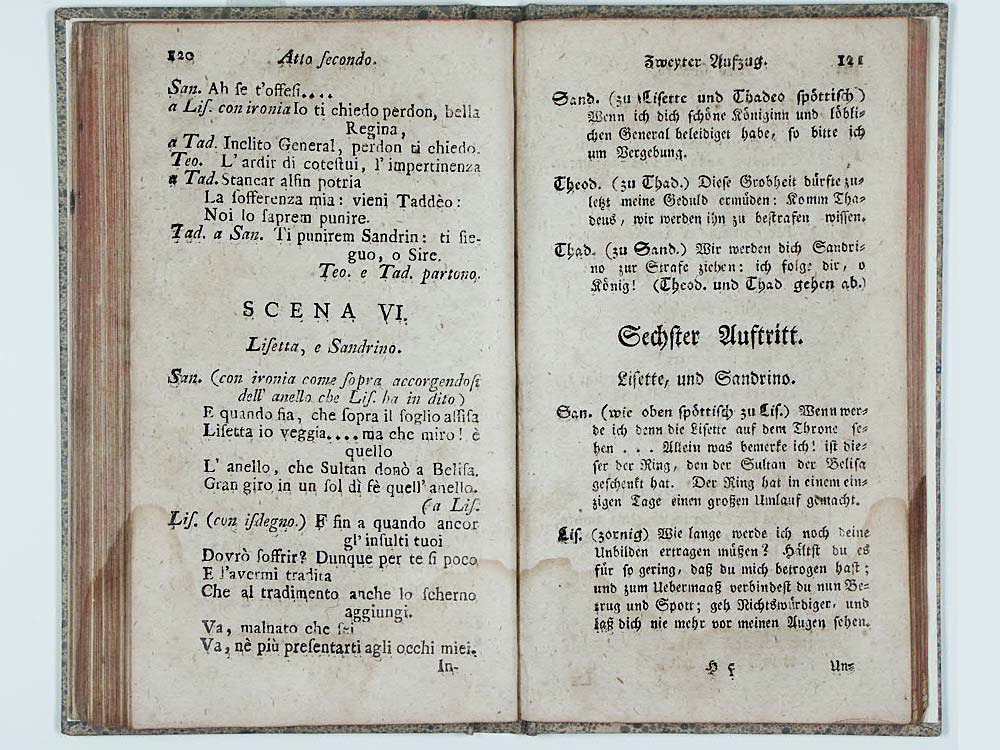 120 Atto ſecondo.
San. Ah ſe t'offeſi....
a Liſ. con ironia Io ti chiedo perdon, bella
Regina,
a Tad. Inclito General, perdon ti chiedo.
Teo. L' ardir di coteſtui, l' impertinenza
a Tad. Stancar alfin potria
La ſofferenza mia: vieni Taddèo:
Noi lo ſaprem punire.
Tad. a San. Ti punirem Sandrin: ti ſie-
guo, o Sire.
Teo. e Tad. partono.
SCENA VI.
Liſetta, e Sandrino.
San. (con ironia come ſopra accorgendoſi
dell' anello che Liſ. ha in dito)
E quando fia, che ſopra il ſoglio aſſiſa
Liſetta io veggia....ma che miro! è
quello
L' anello, che Sultan donò a Beliſa.
Gran giro in un ſol dì fè quell' anello.
(a Liſ.
Liſ. (con iſdegno.) E fin a quando ancor
gl' inſulti tuoi
Dovrò ſoffrir? Dunque per te ſi poco
E l'avermi tradita
Che al tradimento anche lo ſcherno
aggiungi.
Va, malnato che ſei
Va, nè più preſentarti agli occhi miei.
In-
Zweyter Aufzug. 121
Sand. (zu Liſette und Thadeo ſpöttiſch)
Wenn ich dich ſchöne Königinn und löbli-
chen General beleidiget habe, ſo bitte ich
um Vergebung.
Theod. (zu Thad.) Dieſe Grobheit dürfte zu-
letzt meine Geduld ermüden: Komm Tha-
deus, wir werden ihn zu beſtrafen wiſſen.
Thad. (zu Sand.) Wir werden dich Sandri-
no zur Strafe ziehen: ich folge dir, o
König! (Theod. und Thad gehen ab.)
Sechſter Auftritt.
Liſette, und Sandrino.
San. (wie oben ſpöttiſch zu Liſ.) Wenn wer-
de ich denn die Liſette auf dem Throne ſe-
hen . . . Allein was bemerke ich! iſt die-
ſer der Ring, den der Sultan der Beliſa
geſchenkt hat. Der Ring hat in einem ein-
zigen Tage einen großen Umlauf gemacht.
Liſ. (zornig) Wie lange werde ich noch deine
Unbilden ertragen müßen? Hältſt du es
für ſo gering, daß du mich betrogen haſt;
und zum Uebermaaß verbindeſt du nun Be-
trug und Spott; geh Nichtswürdiger, und
laß dich nie mehr vor meinen Augen ſehen.
H 5 Un-